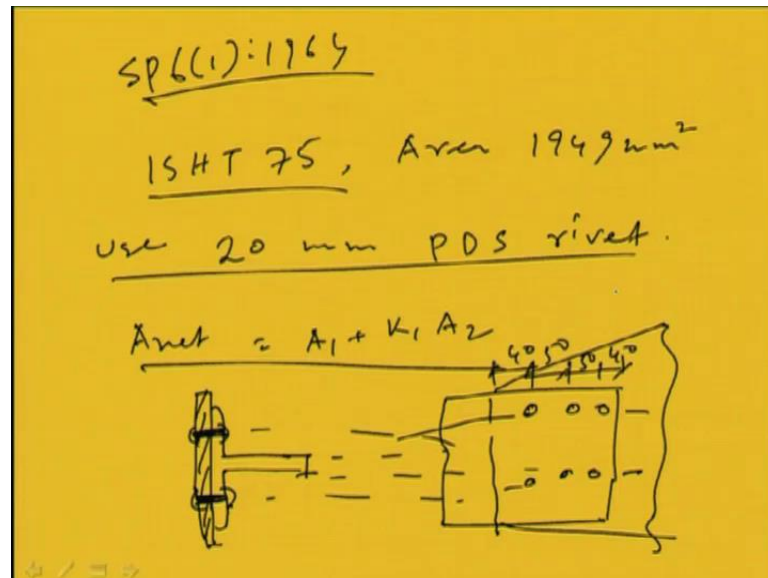 SP6(1):1964
ISHT 75, Area 1949 mm²
Use 20 mm PDS rivet.
Anet = A1 + K1 A2
40 50 50 40